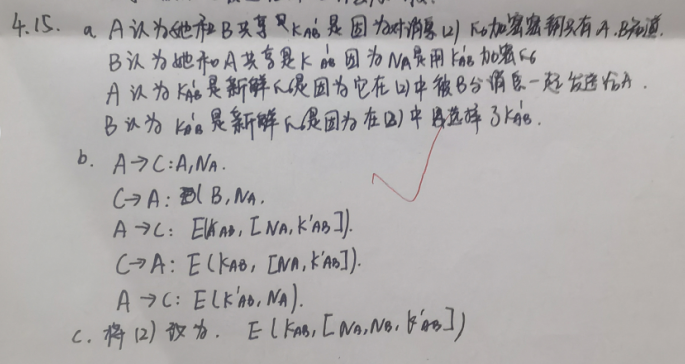 4.15. a A认为她和B共享K'AB是因为对消息(2)的加密密钥只有A.B知道.
B认为她和A共享是K'AB因为NA是用K'AB加密的
A认为K'AB是新鲜的是因为它在(2)中被B与消息一起发送给A.
B认为K'AB是新鲜的是因为在(2)中选择了K'AB.
b. A→C:A,NA.
C→A: B,NA.
A→C: E(KAB, [NA,K'AB]).
C→A: E(KAB, [NA,K'AB]).
A→C: E(K'AB, NA).
c. 将(2)改为. E(KAB,[NA,NB,K'AB])